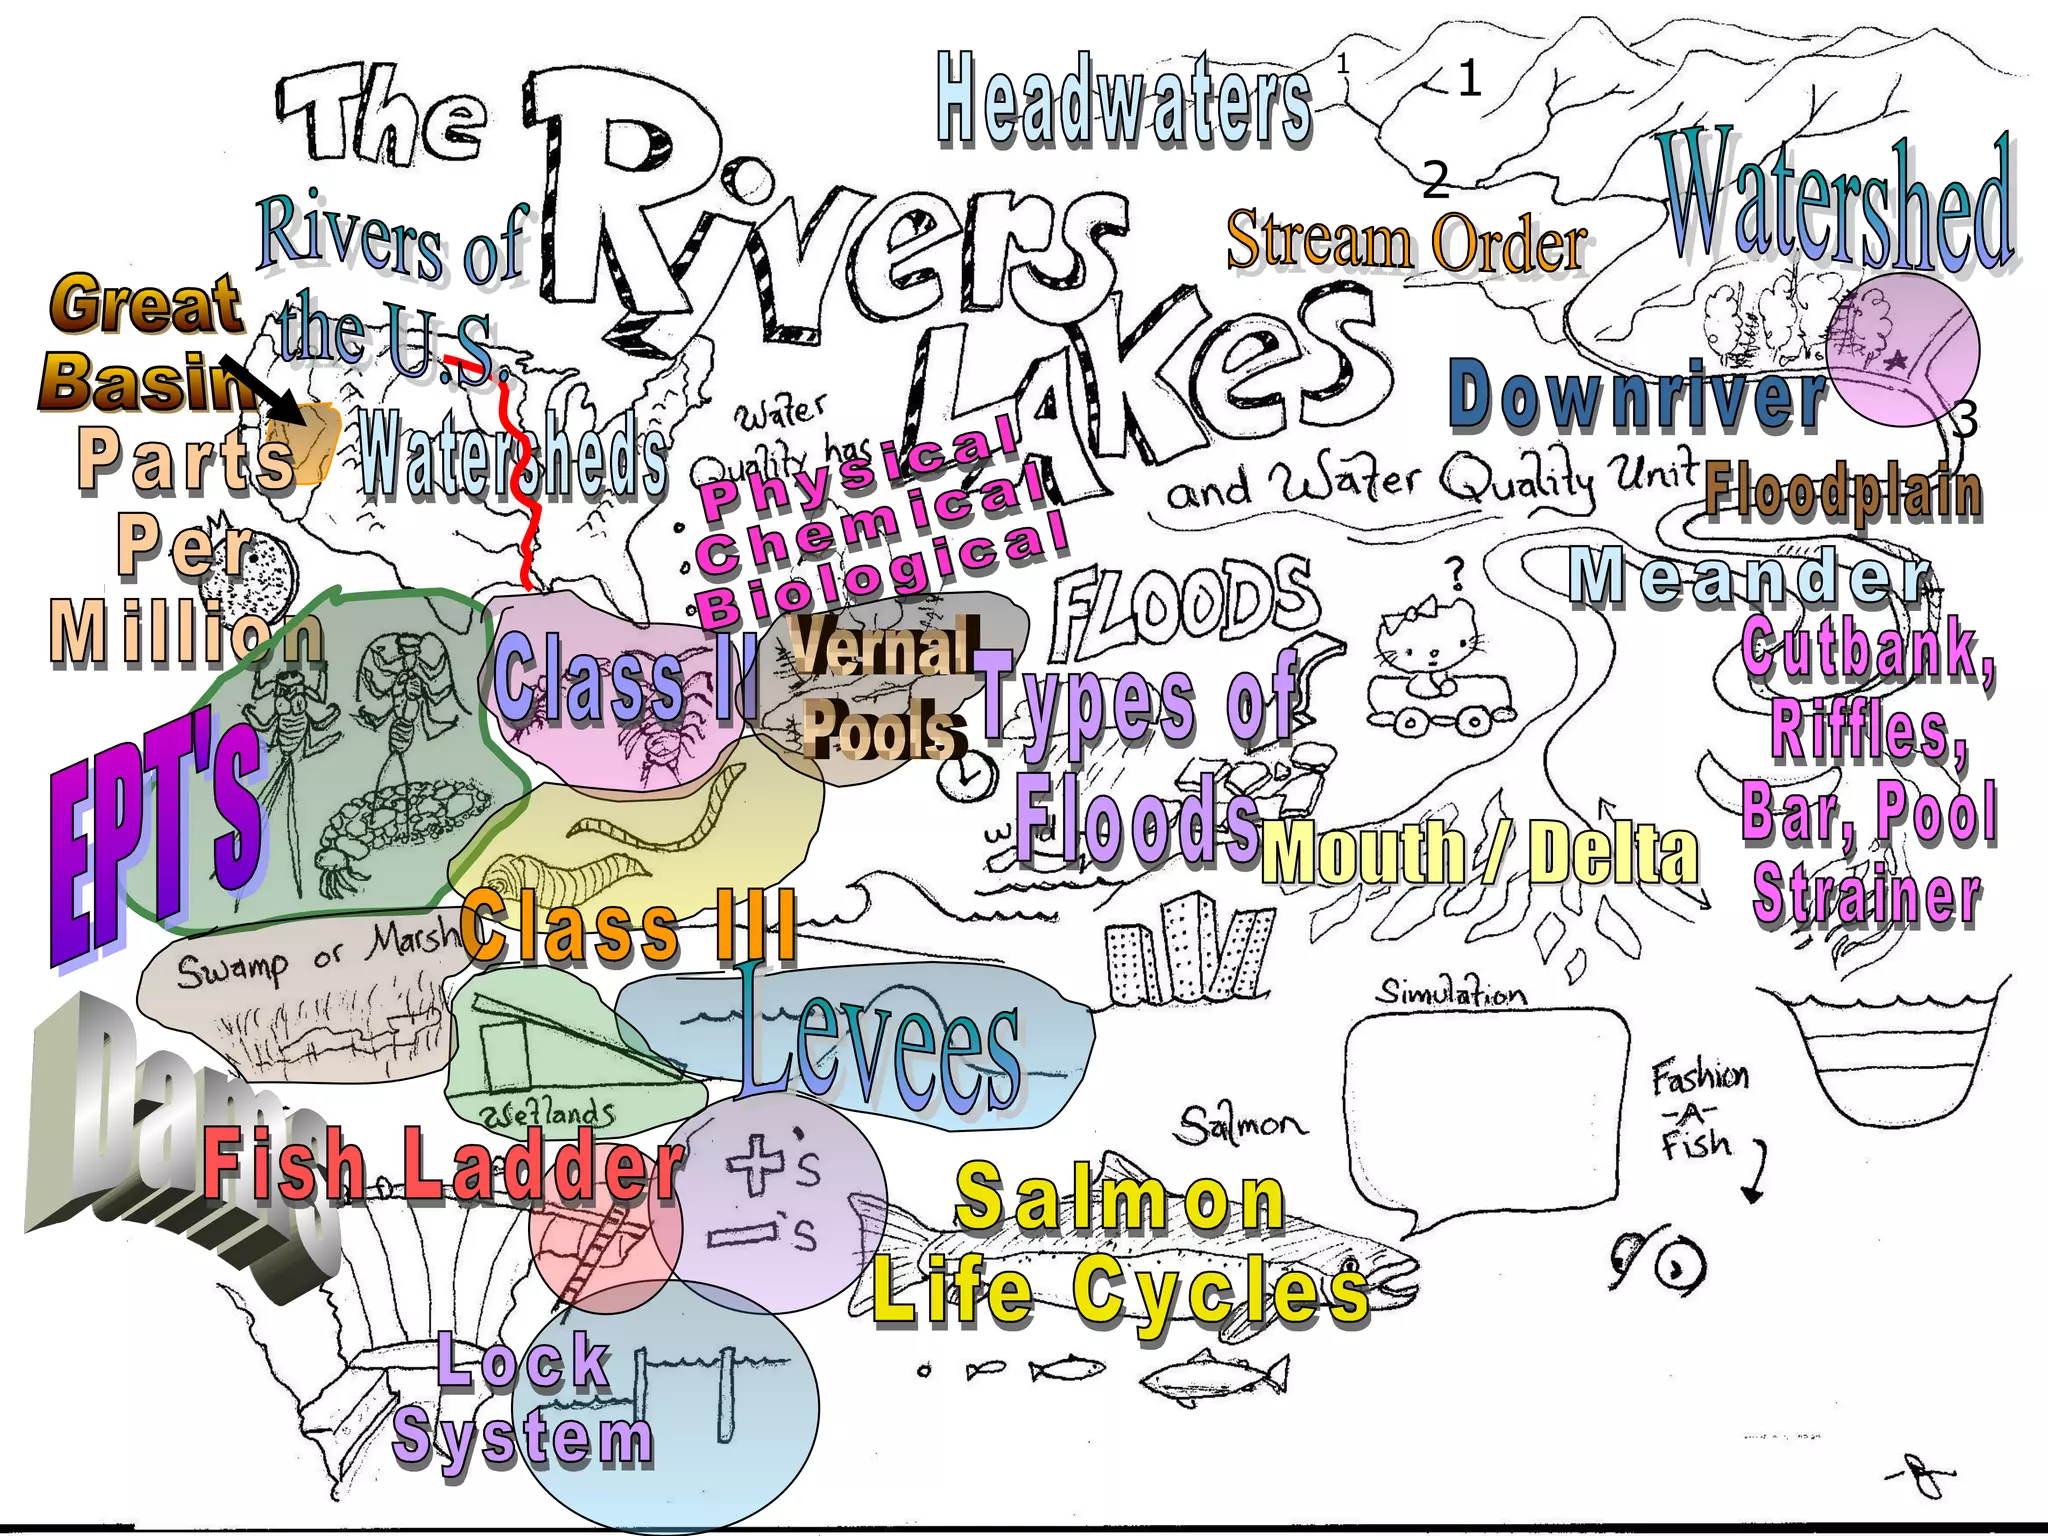 The
Rivers
Lakes
and Water Quality Unit
Headwaters
1
1
2
3
Stream Order
Watershed
Rivers of
the U.S.
Great
Basin
Watersheds
Parts
Per
Million
Water
Quality has
Physical
Chemical
Biological
Downriver
Floodplain
Meander
Cutbank,
Riffles,
Bar, Pool
Strainer
FLOODS
?
Types of
Floods
Mouth / Delta
Vernal
Pools
Class II
EPT's
Class III
Swamp or Marsh
Wetlands
Levees
Dams
Fish Ladder
+'s
-'s
Lock
System
Salmon
Life Cycles
Salmon
Simulation
Fashion
-A-
Fish